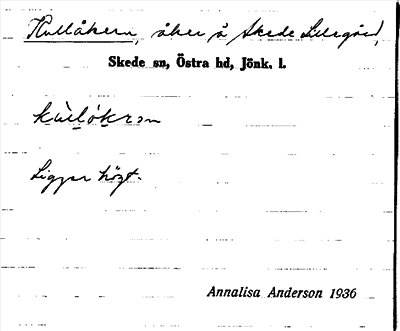 Kullåkern, åker å Skede Lillegård,
Skede sn, Östra hd, Jönk. l.
kùlåkrən
Ligger högt.
Annalisa Anderson 1936